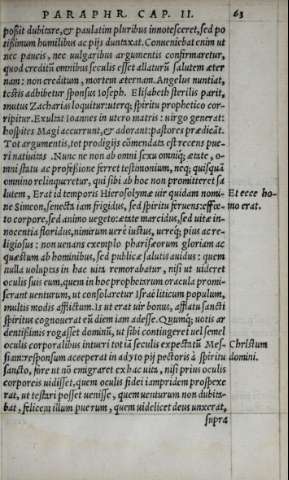 PARAPHR. CAP. II. 63
possit dubitare, & paulatim pluribus innotesceret, sed po
tissimum humilibus ac pijs duntaxat. Conueniebat enim ut
nec paucis, nec uulgaribus argumentis confirmaretur,
quod creditũ omnibus seculis esset allaturũ salutem æter
nam: non creditum, mortem æternam. Angelus nuntiat,
testis adhibetur sponsus Ioseph. Elisabeth sterilis parit,
mutus Zacharias loquitur: uterq; spiritu prophetico cor-
ripitur. Exultat Ioannes in utero matris: uirgo generat:
hospites Magi accurrunt, & adorant: pastores prædicãt.
Tot argumentis, tot prodigijs cõmendata est recens pue-
ri natiuitas. Nunc ne non ab omni sexu omniq́; ætate, o-
mni statu ac professione ferret testonium, neq; quisquã
omnino relinqueretur, qui sibi ab hoc non promitteret sa
lutem, Erat id temporis Hierosolymæ uir quidam nomi-
ne Simeon, senecta iam frigidus, sed spiritu feruens: effœ-
to corpore, sed animo uegeto: ætate marcidus, sed uitæ in-
nocentia floridus, nimirum uere iustus, uereq; pius ac re-
ligiosus: non uenans exemplo pharisæorum gloriam ac
quæstum ab hominibus, sed publicæ salutis auidus: quem
nulla uoluptas in hac uita remorabatur, nisi ut uideret
oculis suis eum, quem in hoc prophetarum oracula promi-
serant uenturum, ut consolaretur Israëliticum populum,
multis modis afflictum. Is ut erat uir bonus, afflatu sancti
spiritus cognouerat eũ diem iam adesse. Quumq; uotis ar
dentissimis rogasset dominũ, ut sibi contingeret uel semel
oculis corporalibus intueri tot iã seculis expectatũ Mes-
siam: responsum acceperat in adyto pij pectoris à spiritu
sancto, fore ut nõ emigraret ex hac uita, nisi prius oculis
corporeis uidisset, quem oculis fidei iampridem prospexe
rat, ut testari posset uenisse, quem uenturum non dubita-
bat, felicem illum puerum, quem uidelicet deus unxerat,
supra
Et ecce ho-
mo erat.
Christum
domini.